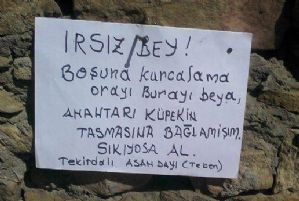 IRSIZ BEY!
BOŞUNA KURCALAMA
ORAYI BURAYI BEYA,
ANAHTARI KÜPEKİN
TASMASINA BAĞLAMIŞIM.
SIKIYOSA AL.
Tekirdalı ASAN DAYI (Teben)